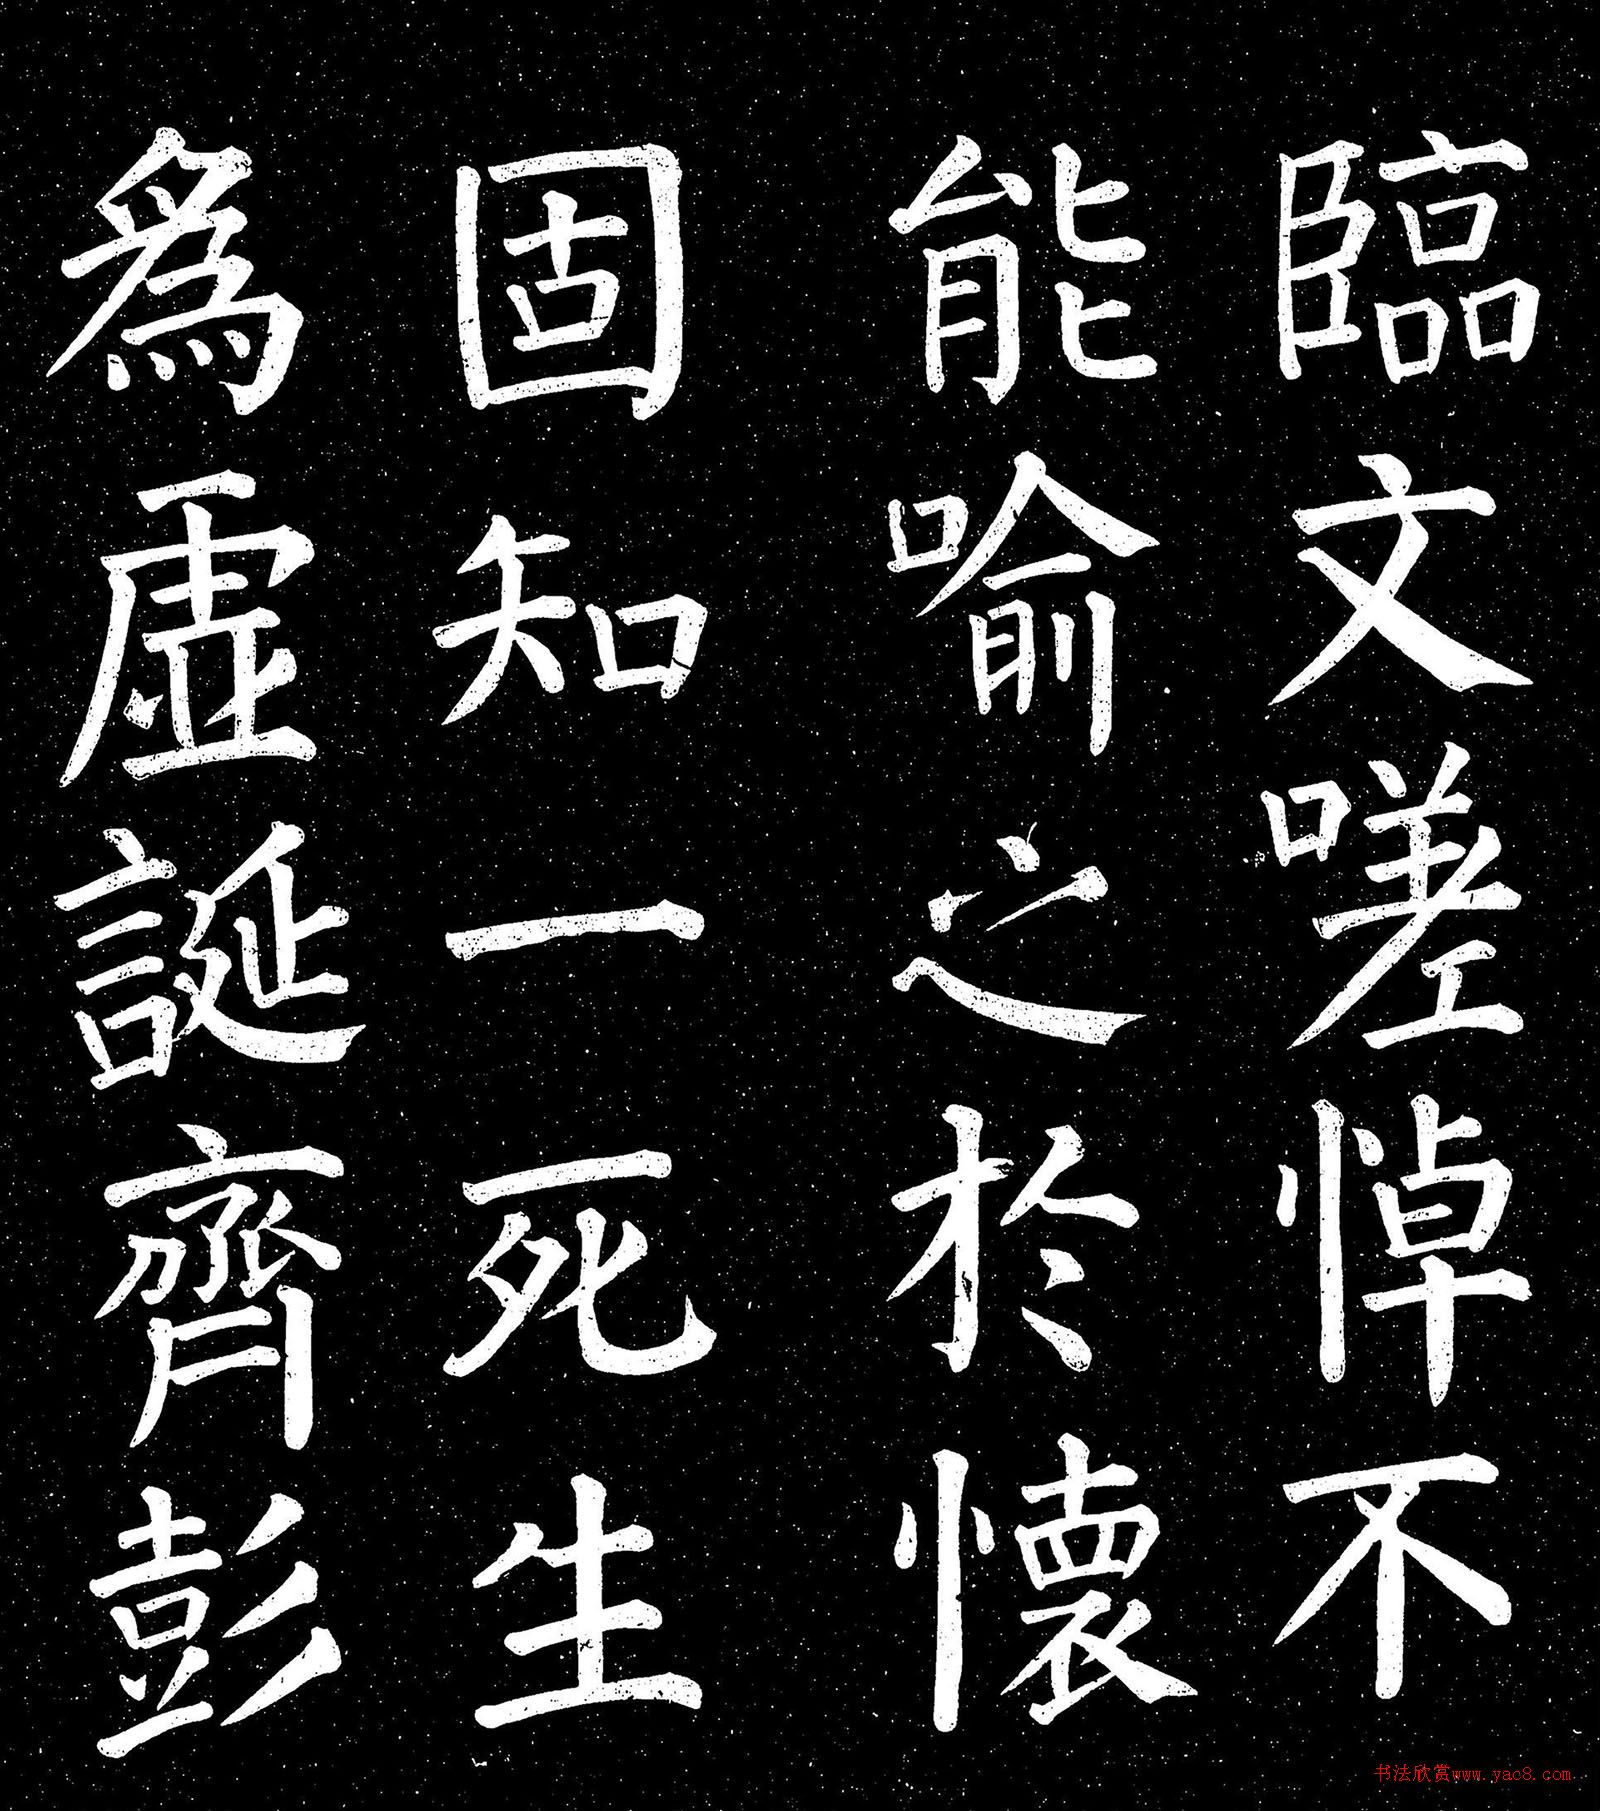 臨文嗟悼不
能喻之於懷
固知一死生
為虛誕齊彭
书法欣赏www.yac8.com